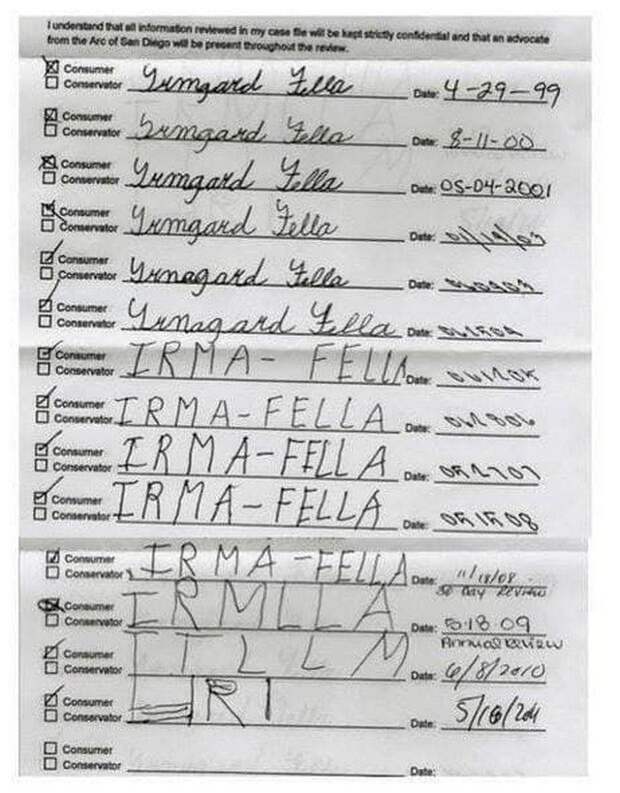 I understand that all information reviewed in my case file will be kept strictly confidential and that an advocate
from the Arc of San Diego will be present throughout the review.
Consumer
Conservator Yrmgard Fella Date: 4-29-99
Consumer
Conservator Yrmgard Fella Date: 8-11-00
Consumer
Conservator Yrmgard Fella Date: 05-04-2001
Consumer
Conservator Yrmgard Fella Date:
Consumer
Conservator Yrnagard Fella Date:
Consumer
Conservator Yrnagard Fella Date:
Consumer
Conservator IRMA- FELLA Date:
Consumer
Conservator IRMA-FELLA Date:
Consumer
Conservator IRMA-FELLA Date:
Consumer
Conservator IRMA-FELLA Date: 051508
Consumer
Conservator IRMA-FELLA Date: 11/18/08
30 Day Review
Consumer
Conservator IRMLLA Date: 5-18-09
Annual Review
Consumer
Conservator ITLLM Date: 6/8/2010
Consumer
Conservator Date:
Consumer
Conservator Date: